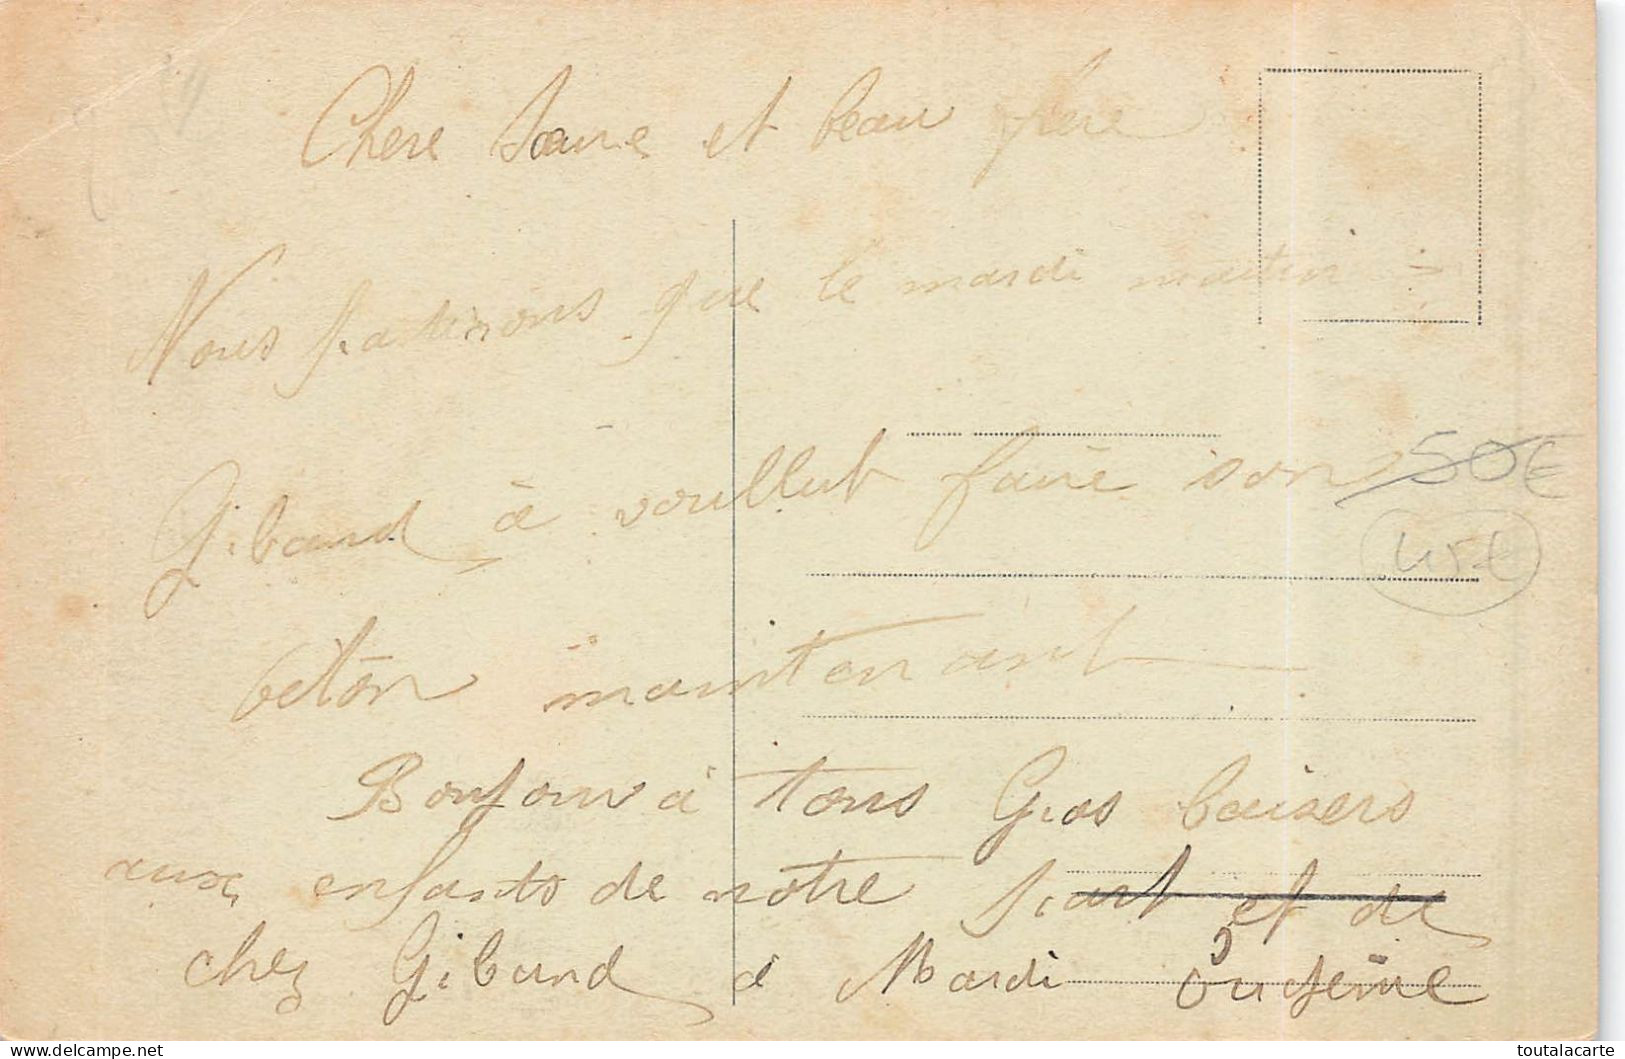 Chere Soeure et beau frere
Nous partirons que le mardi matin
Giband à voullut faire son
50€
45€
béton maintenant
Bonjour à tous Gros baisers
aux enfants de notre part et de
chez Giband à Mardi
www.delcampe.net
toutalacarte